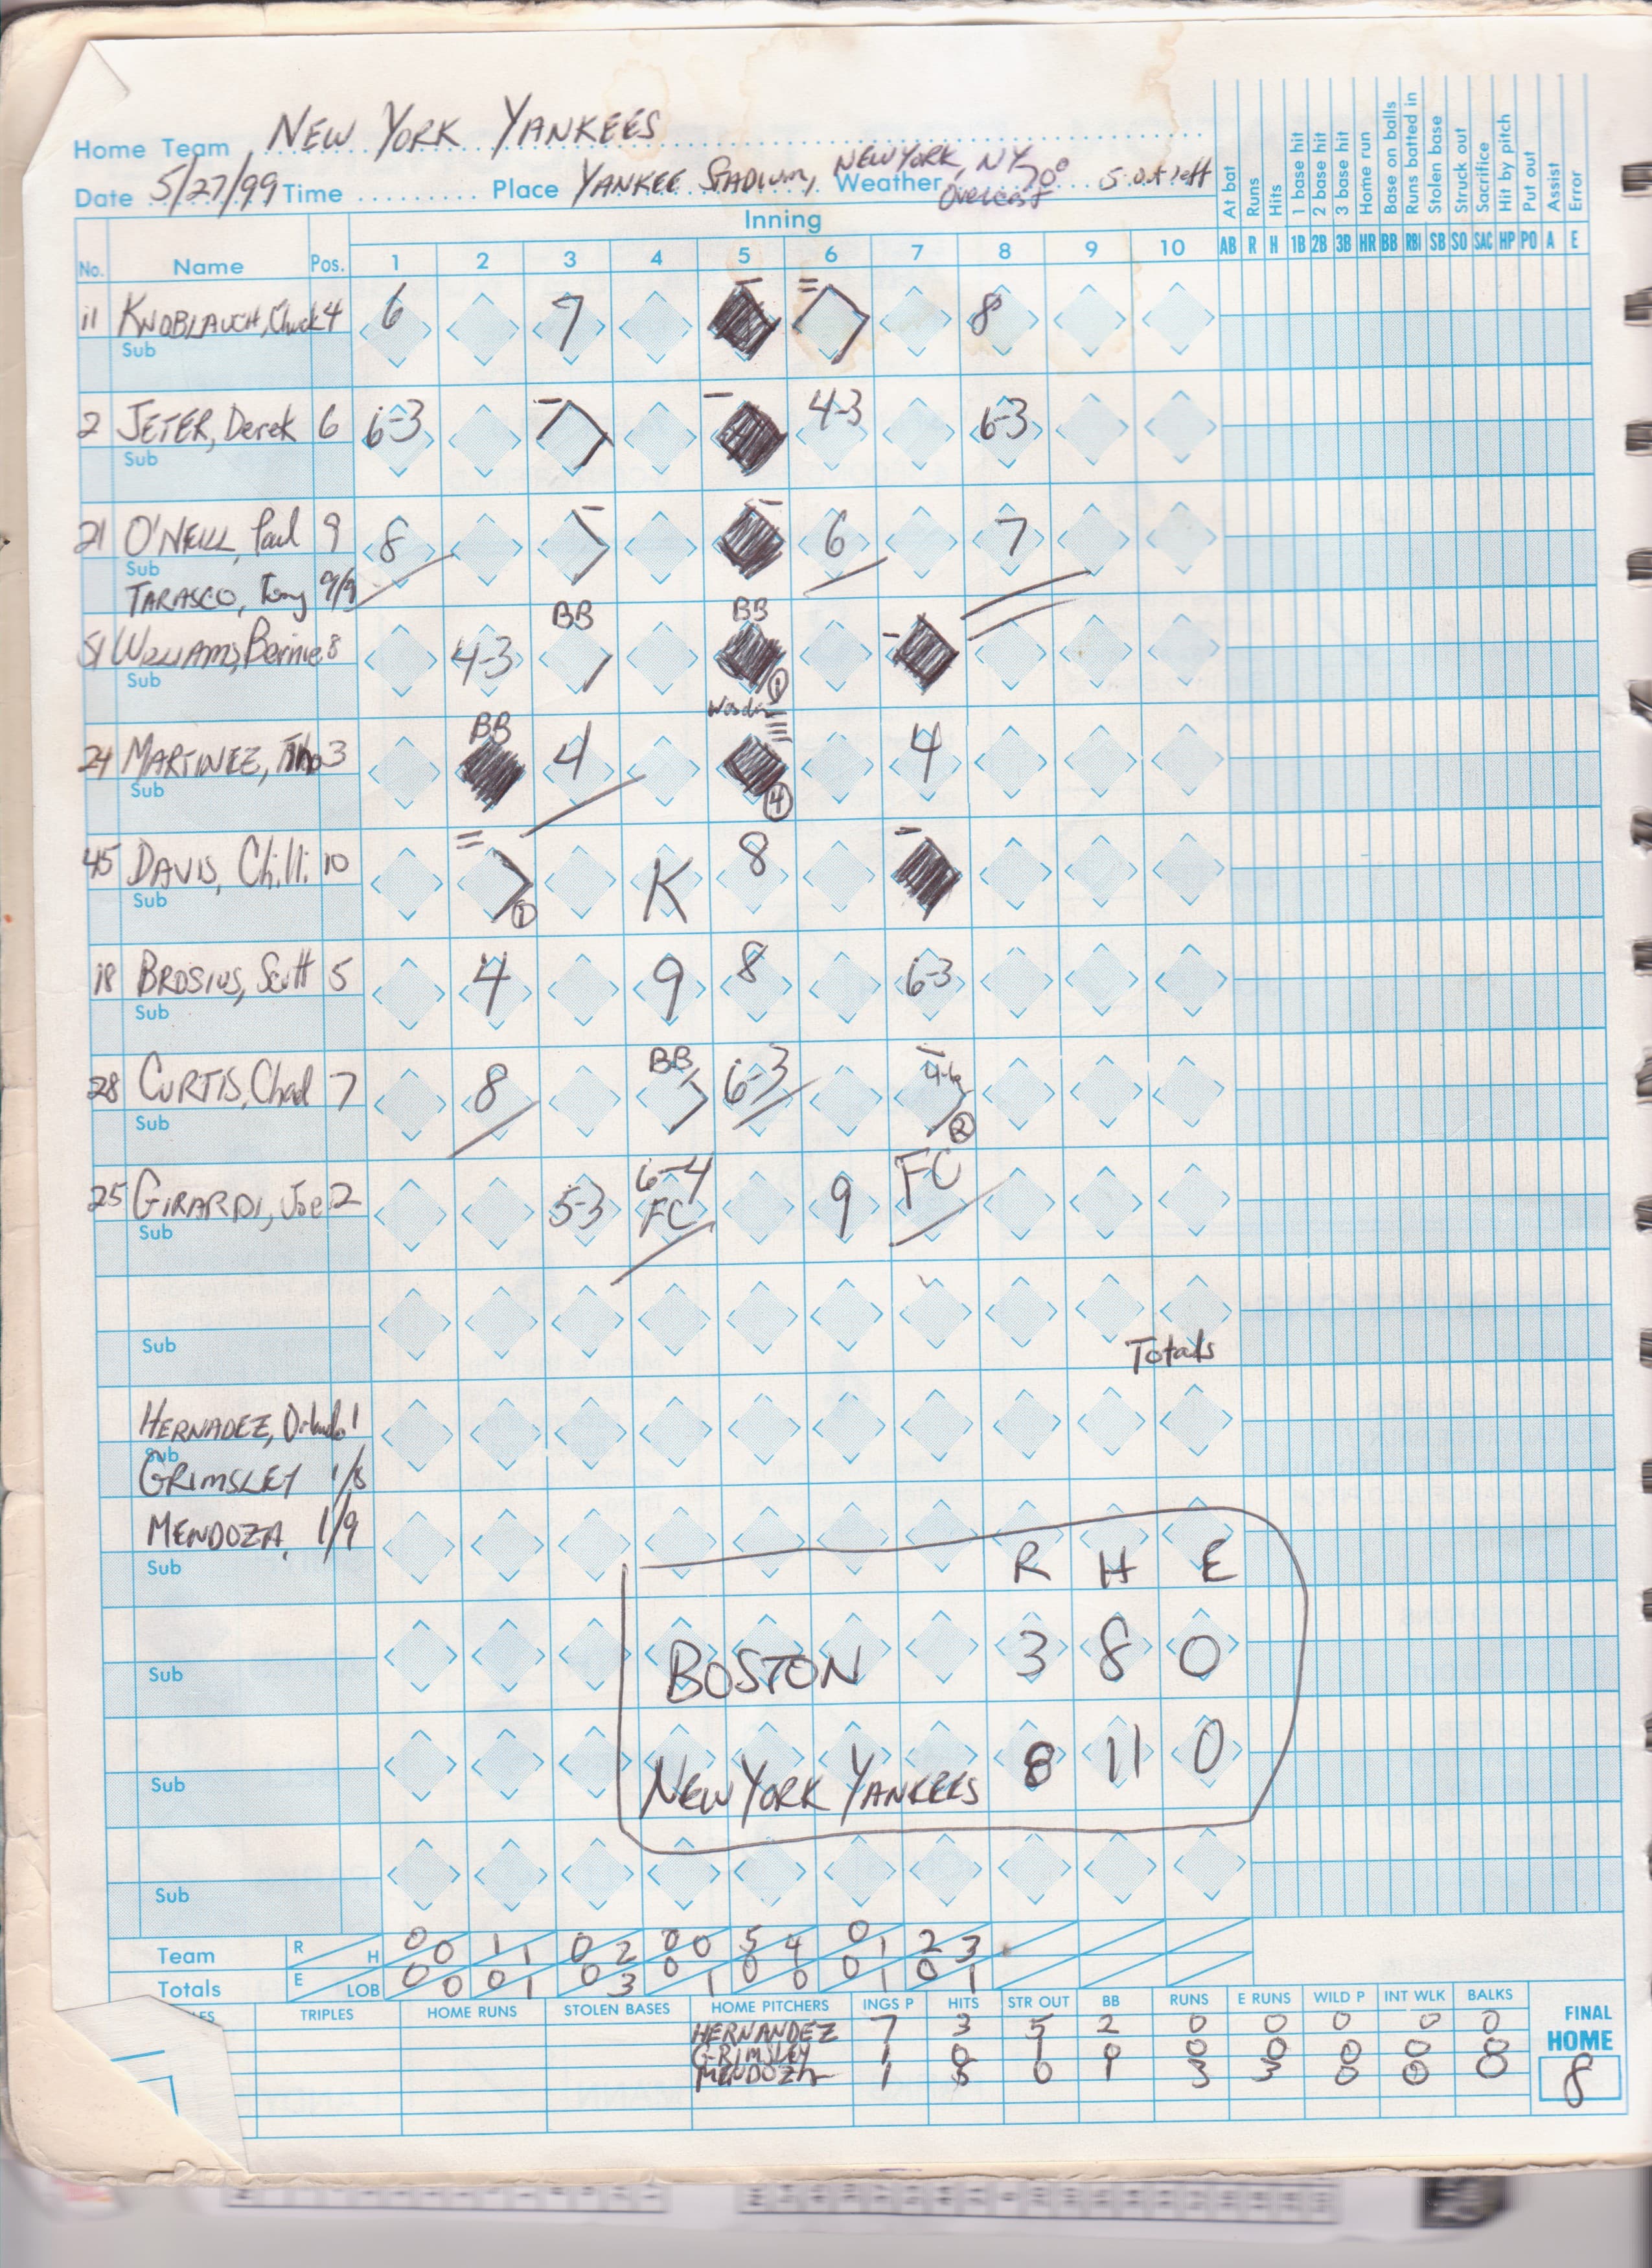 Home Team NEW YORK YANKEES
Date 5/27/99 Time Place YANKEE STADIUM, NEW YORK, NY Weather 70° Overcast 5 out left
At bat Runs Hits 1 base hit 2 base hit 3 base hit Home run Base on balls Runs batted in Stolen base Struck out Sacrifice Hit by pitch Put out Assist Error
Inning
No. Name Pos. 1 2 3 4 5 6 7 8 9 10 AB R H 1B 2B 3B HR BB RBI SB SO SAC HP PO A E
11 KNOBLAUCH, Chuck 4 6 7 8
Sub
2 JETER, Derek 6 6-3 4-3 6-3
Sub
21 O'NEILL, Paul 9 8 6 7
Sub
TARASCO, Tony 9/9
BB BB
51 WILLIAMS, Bernie 8 4-3 1
Sub
BB
24 MARTINEZ, Tino 3 4 4 4
Sub
45 DAVIS, Chili 10 1 K 8
Sub
18 BROSIUS, Scott 5 4 9 8 6-3
Sub
28 CURTIS, Chad 7 8 BB 6-3 4-6 2
Sub
25 GIRARDI, Joe 2 5-3 6-4 FC 9 FC
Sub
Sub
Totals
HERNADEZ, Orlando 1
Sub
GRIMSLEY 1/8
MENDOZA, 1/9
Sub
R H E
BOSTON 3 8 0
Sub
NEW YORK YANKEES 8 11 0
Sub
Sub
Team R H 0 0 1 1 0 2 0 0 5 4 0 1 2 3
Totals E LOB 0 0 0 1 0 3 0 1 0 0 0 1 0 1
TRIPLES HOME RUNS STOLEN BASES HOME PITCHERS INGS P HITS STR OUT BB RUNS E RUNS WILD P INT WLK BALKS FINAL
HERNANDEZ 7 3 5 2 0 0 0 0 0 HOME
GRIMSLEY 1 0 1 0 0 0 0 0 0 8
MENDOZA 1 5 0 1 3 3 0 0 0